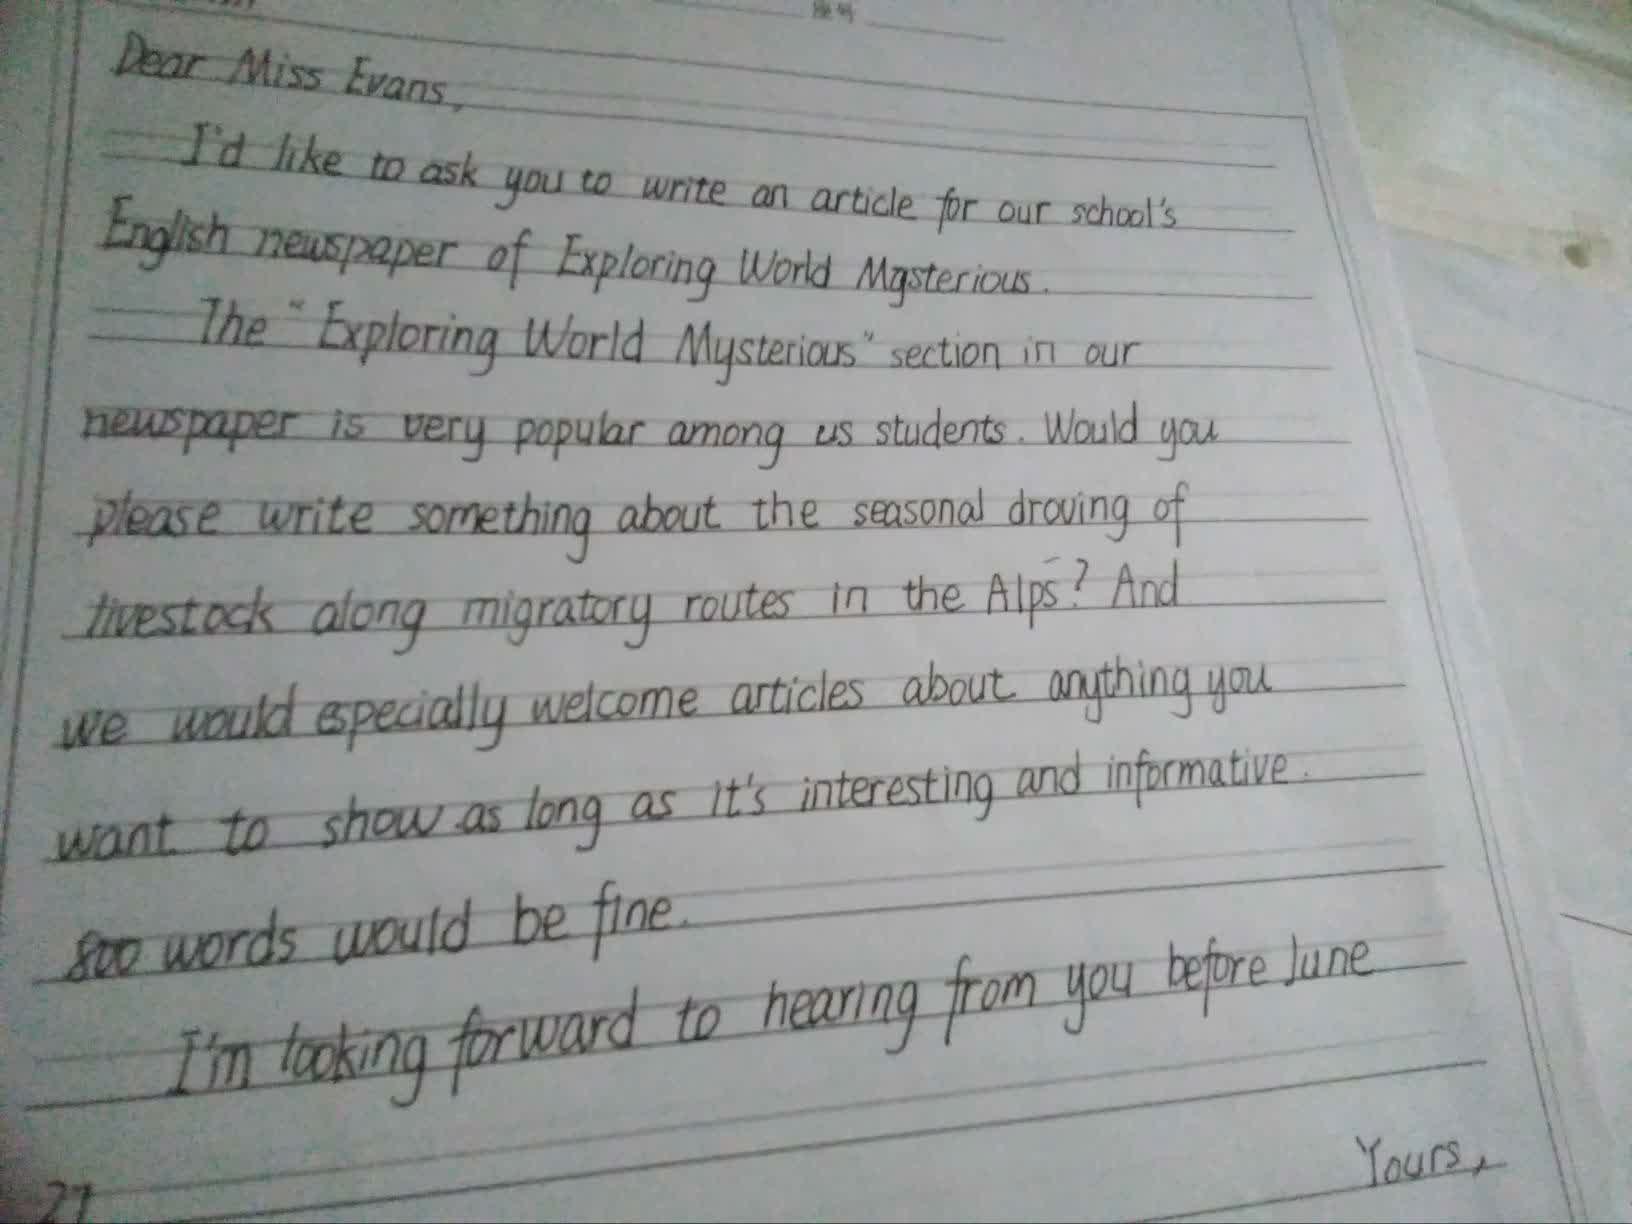 座号
Dear Miss Evans,
I'd like to ask you to write an article for our school's
English newspaper of Exploring World Mysterious.
The "Exploring World Mysterious" section in our
newspaper is very popular among us students. Would you
please write something about the seasonal droving of
livestock along migratory routes in the Alps? And
we would especially welcome articles about anything you
want to show as long as it's interesting and informative.
800 words would be fine.
I'm looking forward to hearing from you before June
27
Yours,